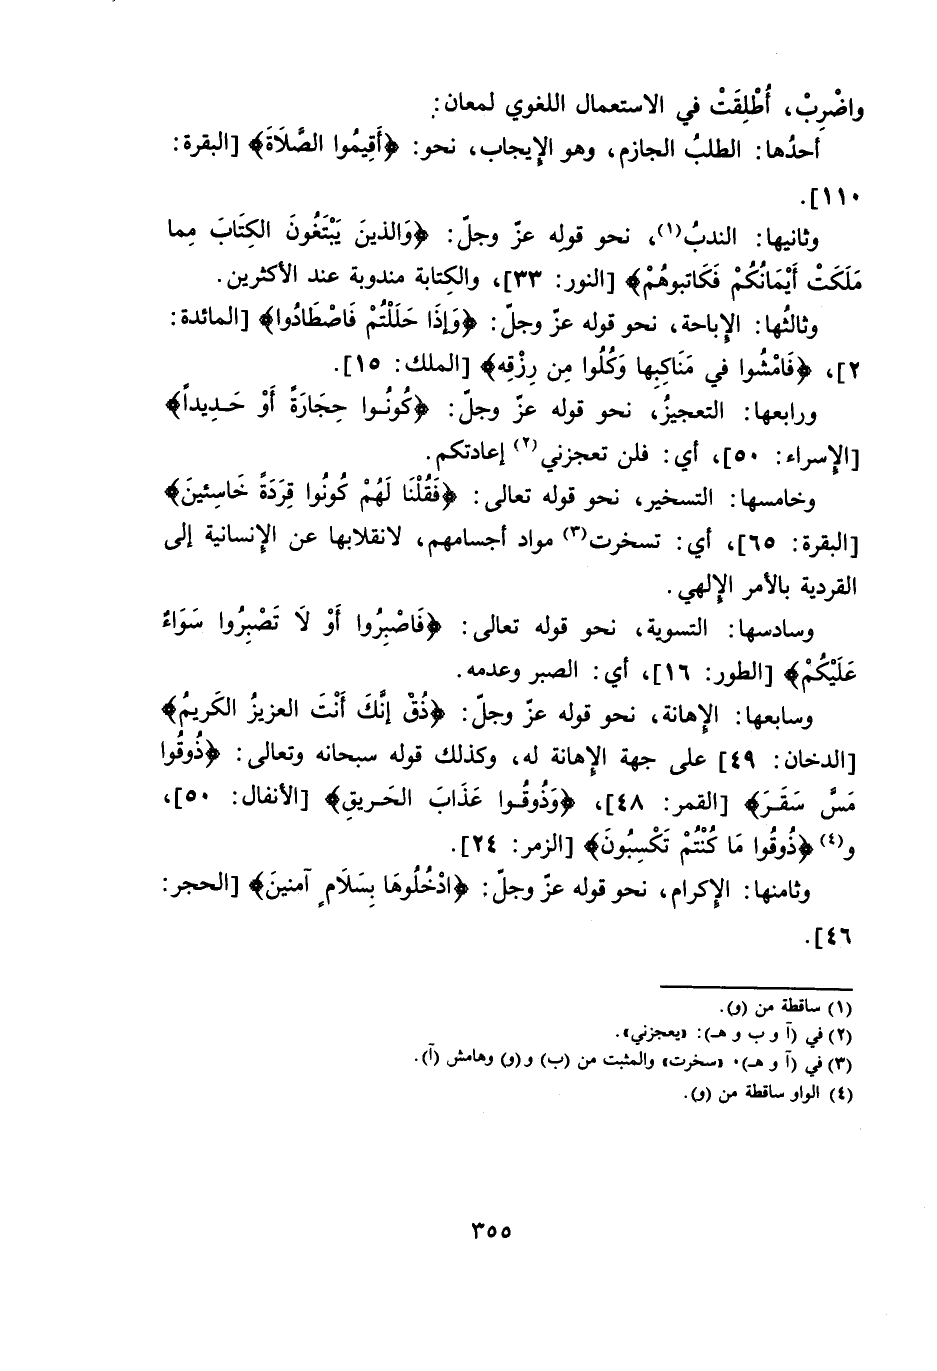 واضْرِبْ، أُطْلِقَتْ في الاستعمال اللغوي لمعان:
أحدُها: الطلبُ الجازم، وهو الإيجاب، نحو: ﴿أَقِيمُوا الصَّلَاةَ﴾ [البقرة:
١١٠].
وثانيها: الندبُ(١)، نحو قولِه عزّ وجلّ: ﴿وَالذينَ يَبْتَغُونَ الكِتَابَ مِما
مَلَكَتْ أَيْمَانُكُمْ فَكَاتبوهُمْ﴾ [النور: ٣٣]، والكِتابة مندوبة عند الأكثرين.
وثالثُها: الإباحة، نحو قوله عزّ وجلّ: ﴿وَإذَا حَلَلْتُمْ فَاصْطَادُوا﴾ [المائدة:
٢]، ﴿فَامْشُوا في مَنَاكِبِها وَكُلُوا مِن رِزْقِه﴾ [الملك: ١٥].
ورابعها: التعجيزُ، نحو قوله عزّ وجلّ: ﴿كُونُوا حِجَارَةً أَوْ حَديداً﴾
[الإسراء: ٥٠]، أي: فلن تعجزني(٢) إعادتكم.
وخامسها: التسخير، نحو قوله تعالى: ﴿فَقُلْنَا لَهُمْ كُونُوا قِرَدَةً خَاسِئينَ﴾
[البقرة: ٦٥]، أي: تسخرت(٣) مواد أجسامهم، لانقلابها عن الإنسانية إلى
القردية بالأمر الإلهي.
وسادسها: التسوية، نحو قوله تعالى: ﴿فَاصْبِرُوا أَوْ لَا تَصْبِرُوا سَوَاءٌ
عَلَيْكُمْ﴾ [الطور: ١٦]، أي: الصبر وعدمه.
وسابعها: الإهانة، نحو قوله عزّ وجلّ: ﴿ذُقْ إنَّكَ أَنْتَ العزيزُ الكَريمُ﴾
[الدخان: ٤٩] على جهة الإهانة له، وكذلك قوله سبحانه وتعالى: ﴿ذُوقُوا
مَسَّ سَقَرَ﴾ [القمر: ٤٨]، ﴿وَذُوقُوا عَذَابَ الحَريقِ﴾ [الأنفال: ٥٠]،
و(٤) ﴿ذُوقُوا مَا كُنْتُمْ تَكْسِبُونَ﴾ [الزمر: ٢٤].
وثامنها: الإكرام، نحو قوله عزّ وجلّ: ﴿ادْخُلُوهَا بِسَلَامٍ آمنينَ﴾ [الحجر:
٤٦].
(١) ساقطة من (و).
(٢) في (آ و ب و هـ): «يعجزني».
(٣) في (آ و هـ): «سخرت» والمثبت من (ب) و(و) وهامش (آ).
(٤) الواو ساقطة من (و).
٣٥٥